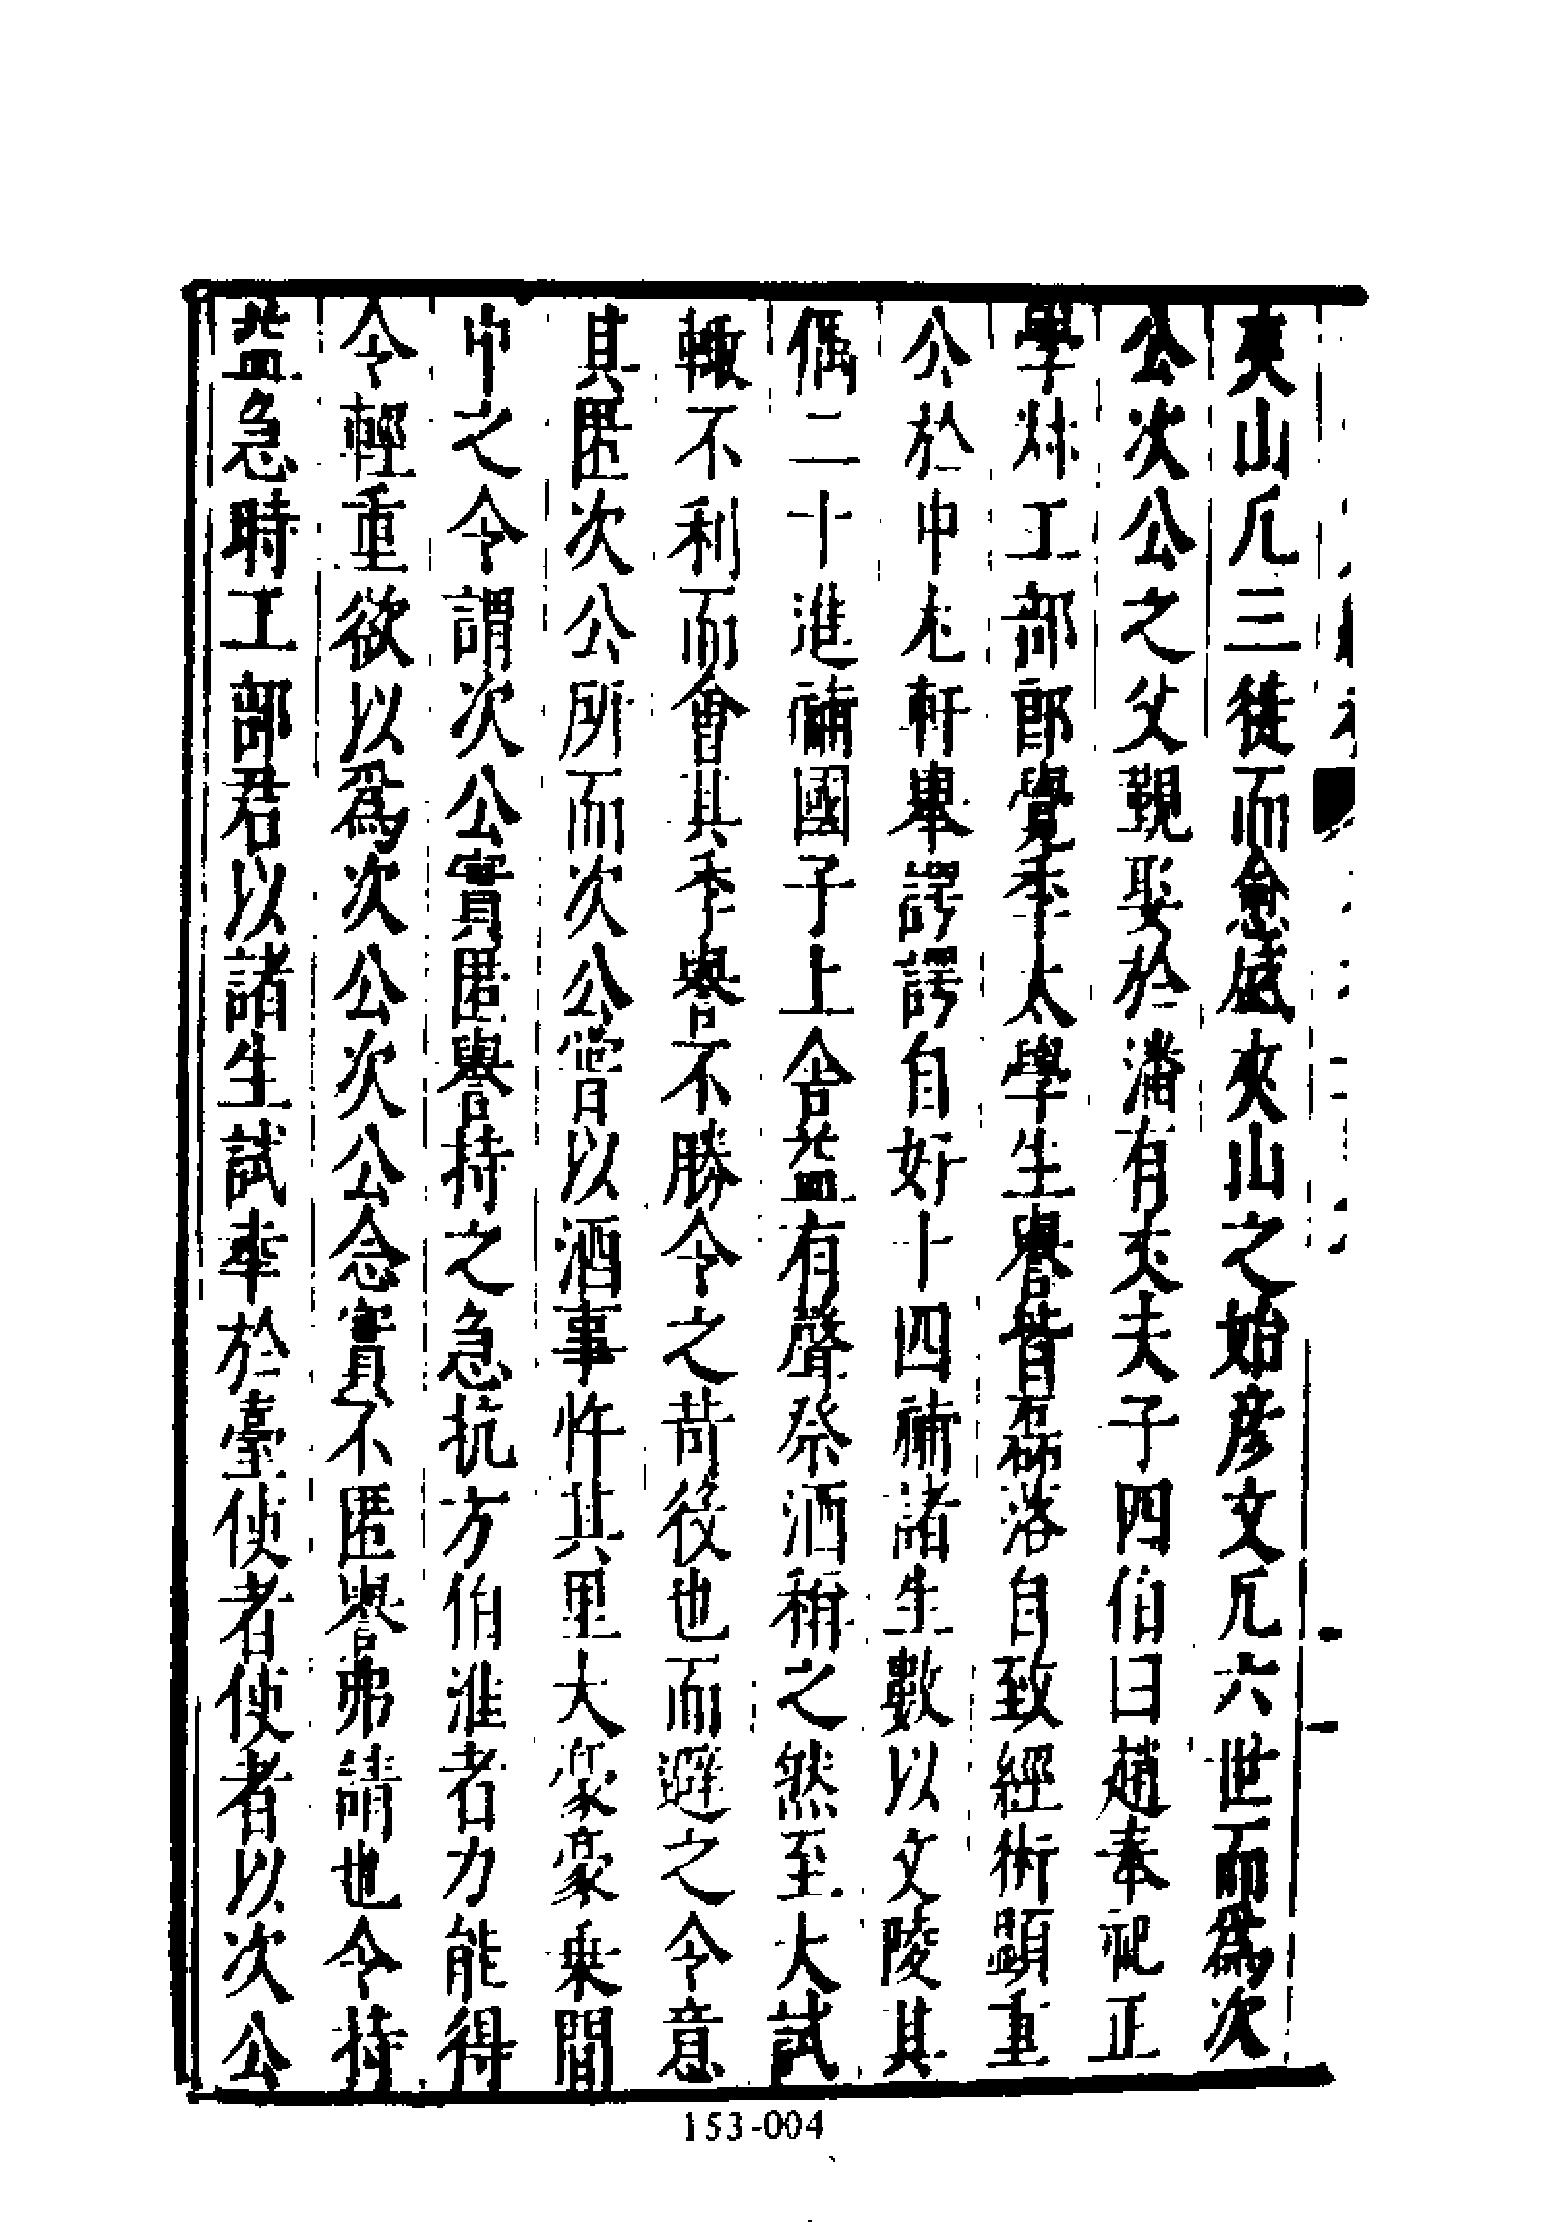 夾山凡三徙而愈盛夾山之始彥文凡六世而為次
公次公之父觀娶於潘有丈夫子四伯曰趙奉祀正
學炑工部郎覺季太學生譽皆磊落自致經術顯重
公於中尤軒舉諤諤自好十四補諸生數以文陵其
偶二十進補國子上舍益有聲祭酒稱之然至大試
輙不利而會其季譽不勝令之苛後也而避之令意
其匿次公所而次公嘗以酒事忤其里大豪豪乗間
中之令謂次公實匿譽持之急抗方伯淮者力能得
令輕重欲以為次公次公念實不匿譽弗請也令持
益急時工部君以諸生試牽於臺使者使者以次公
153-004